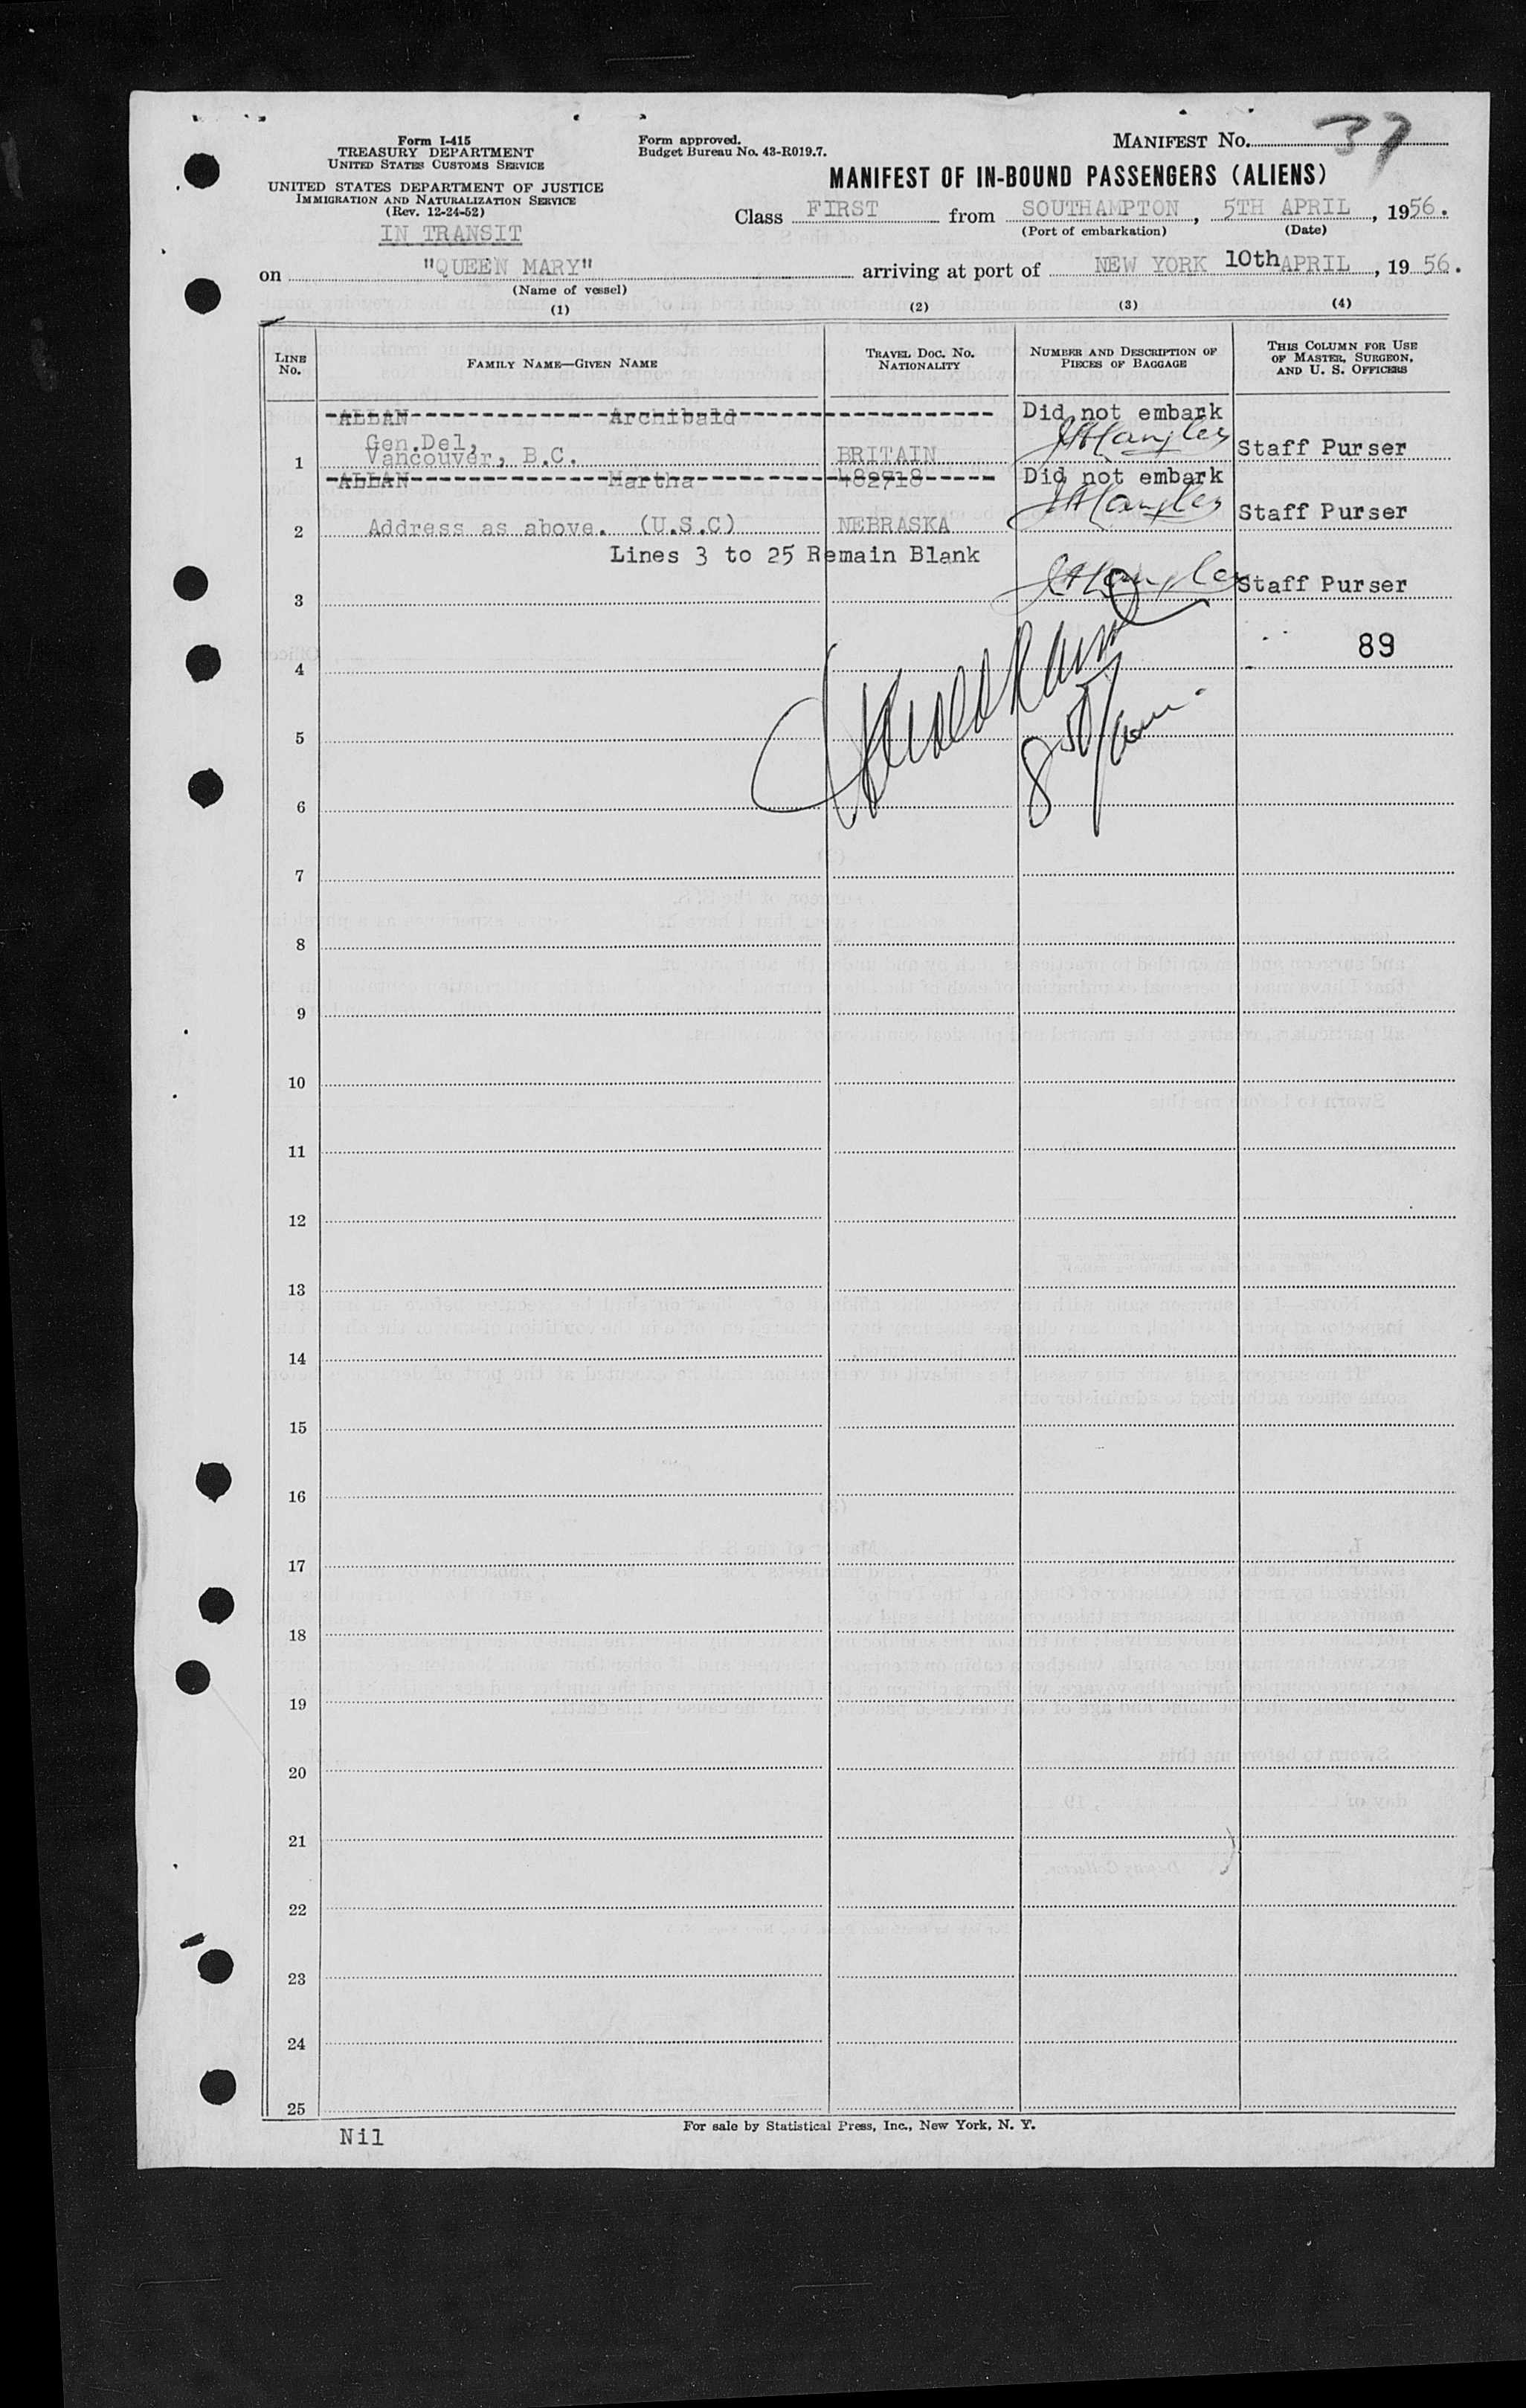 Form I-415
TREASURY DEPARTMENT
UNITED STATES CUSTOMS SERVICE
UNITED STATES DEPARTMENT OF JUSTICE
IMMIGRATION AND NATURALIZATION SERVICE
(Rev. 12-24-52)
IN TRANSIT
Form approved.
Budget Bureau No. 43-R019.7.
MANIFEST No. 37
MANIFEST OF IN-BOUND PASSENGERS (ALIENS)
Class FIRST from SOUTHAMPTON, 5TH APRIL, 1956.
(Port of embarkation) (Date)
on "QUEEN MARY" arriving at port of NEW YORK 10th APRIL, 1956.
(Name of vessel)
(1) (2) (3) (4)
LINE No. FAMILY NAME—GIVEN NAME TRAVEL DOC. No. NATIONALITY NUMBER AND DESCRIPTION OF PIECES OF BAGGAGE THIS COLUMN FOR USE OF MASTER, SURGEON, AND U. S. OFFICERS
ALLAN Archibald Did not embark
Gen.Del,
1 Vancouver, B.C. BRITAIN Staff Purser
ALLAN Martha 482718 Did not embark
2 Address as above. (U.S.C) NEBRASKA Staff Purser
Lines 3 to 25 Remain Blank
3 Staff Purser
4 89
5
6
7
8
9
10
11
12
13
14
15
16
17
18
19
20
21
22
23
24
25
Nil
For sale by Statistical Press, Inc., New York, N. Y.